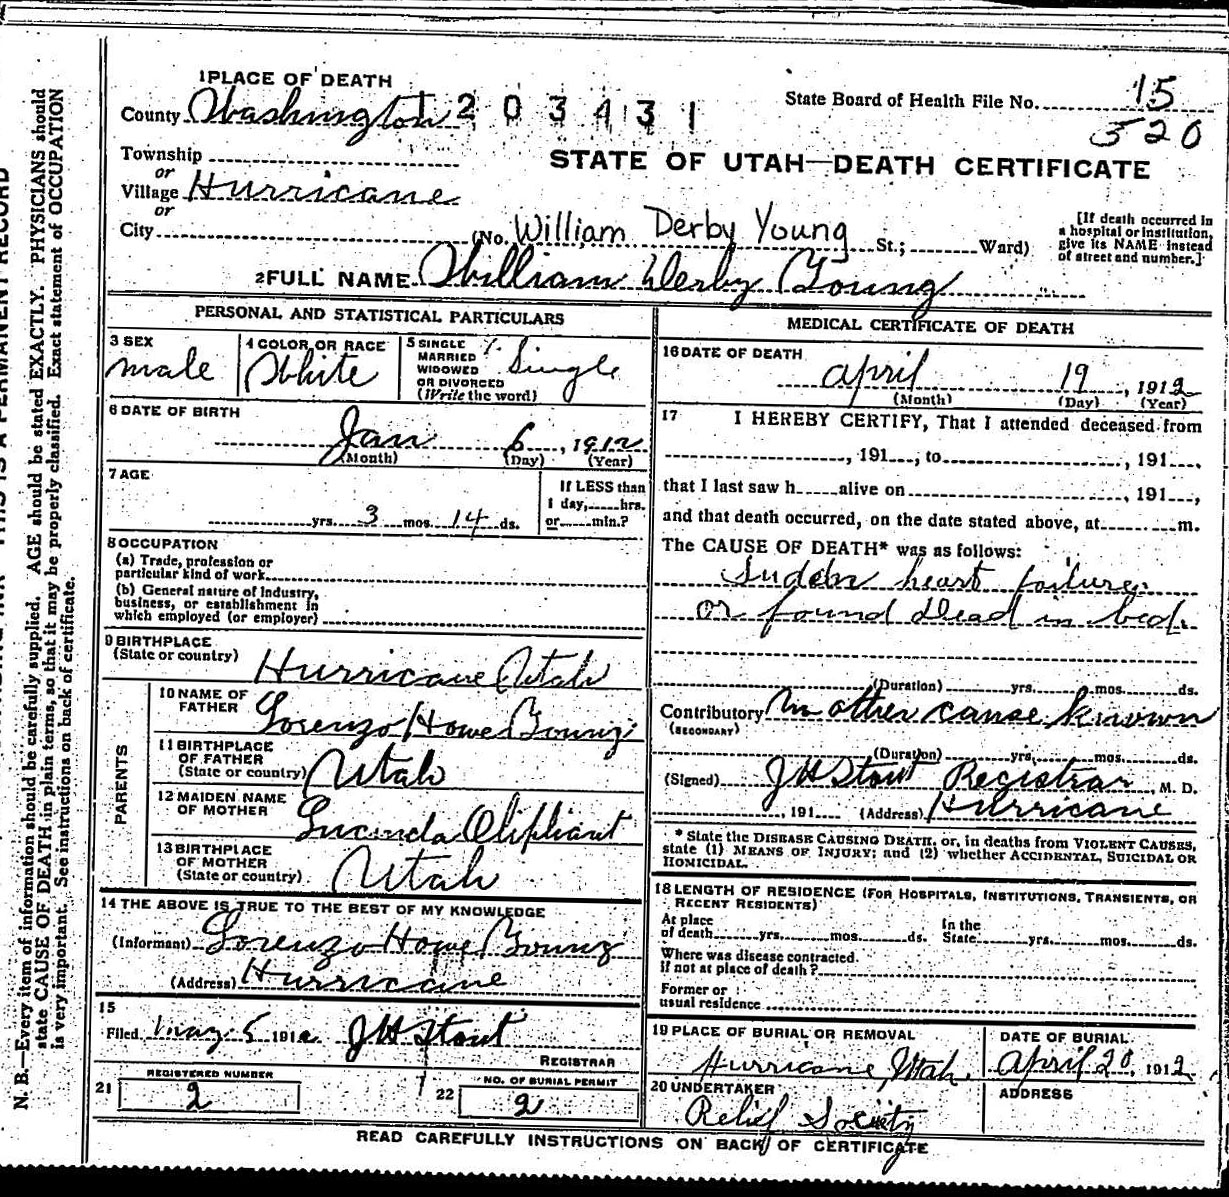 1 PLACE OF DEATH
County Washington 1203431
State Board of Health File No. 15
520
Township
or
Village Hurricane
or
City (No. William Derby Young St.; Ward)
STATE OF UTAH—DEATH CERTIFICATE
[If death occurred in
a hospital or institution,
give its NAME instead
of street and number.]
2 FULL NAME William Derby Young
PERSONAL AND STATISTICAL PARTICULARS
3 SEX
male
4 COLOR OR RACE
White
5 SINGLE
MARRIED
WIDOWED
OR DIVORCED
(Write the word)
Single
6 DATE OF BIRTH
Jan 6, 1912
(Month) (Day) (Year)
7 AGE
yrs. 3 mos. 14 ds.
If LESS than
1 day, hrs.
or min.?
8 OCCUPATION
(a) Trade, profession or
particular kind of work
(b) General nature of industry,
business, or establishment in
which employed (or employer)
9 BIRTHPLACE
(State or country)
Hurricane Utah
PARENTS
10 NAME OF
FATHER
Lorenzo Howe Young
11 BIRTHPLACE
OF FATHER
(State or country)
Utah
12 MAIDEN NAME
OF MOTHER
Lucinda Oliphant
13 BIRTHPLACE
OF MOTHER
(State or country)
Utah
14 THE ABOVE IS TRUE TO THE BEST OF MY KNOWLEDGE
(Informant) Lorenzo Howe Young
(Address) Hurricane
15
Filed May 5 191 J H Stout
REGISTRAR
21 REGISTERED NUMBER
2
22 NO. OF BURIAL PERMIT
2
MEDICAL CERTIFICATE OF DEATH
16 DATE OF DEATH
April 19, 1912
(Month) (Day) (Year)
17 I HEREBY CERTIFY, That I attended deceased from
, 191 , to , 191 ,
that I last saw h alive on , 191 ,
and that death occurred, on the date stated above, at m.
The CAUSE OF DEATH* was as follows:
Sudden heart failure
or found dead in bed.
(Duration) yrs. mos. ds.
Contributory no other cause known
(SECONDARY)
(Duration) yrs. mos. ds.
(Signed) J H Stout Registrar, M. D.
, 191 (Address) Hurricane
* State the DISEASE CAUSING DEATH, or, in deaths from VIOLENT CAUSES,
state (1) MEANS OF INJURY; and (2) whether ACCIDENTAL, SUICIDAL OR
HOMICIDAL.
18 LENGTH OF RESIDENCE (FOR HOSPITALS, INSTITUTIONS, TRANSIENTS, OR
RECENT RESIDENTS)
At place
of death yrs. mos. ds.
In the
State yrs. mos. ds.
Where was disease contracted.
if not at place of death?
Former or
usual residence
19 PLACE OF BURIAL OR REMOVAL
Hurricane, Utah.
DATE OF BURIAL
April 20, 1912
20 UNDERTAKER
Relief Society
ADDRESS
READ CAREFULLY INSTRUCTIONS ON BACK OF CERTIFICATE
N. B.—Every item of information should be carefully supplied. AGE should be stated EXACTLY. PHYSICIANS should
state CAUSE OF DEATH in plain terms, so that it may be properly classified. Exact statement of OCCUPATION
is very important. See instructions on back of certificate.
THIS IS A PERMANENT RECORD